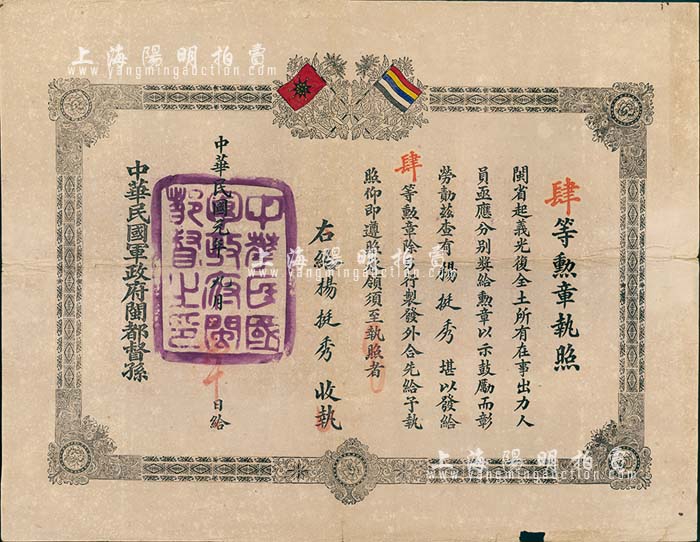 上海陽明拍賣
www.yangmingauction.com
肆等勲章執照
閩省起義光復全土所有在事出力人
員亟應分别奬給勲章以示鼓勵而彰
勞勩兹查有楊挺秀堪以發給
肆等勲章除另行製發外合先給予執
照仰即遵照祗領須至執照者
右給楊挺秀收執
中華民國元年九月 十日給
中華民國軍政府閩都督孫
中華民國
軍政府閩
都督之印
上海陽明拍賣
www.yangmingauction.com